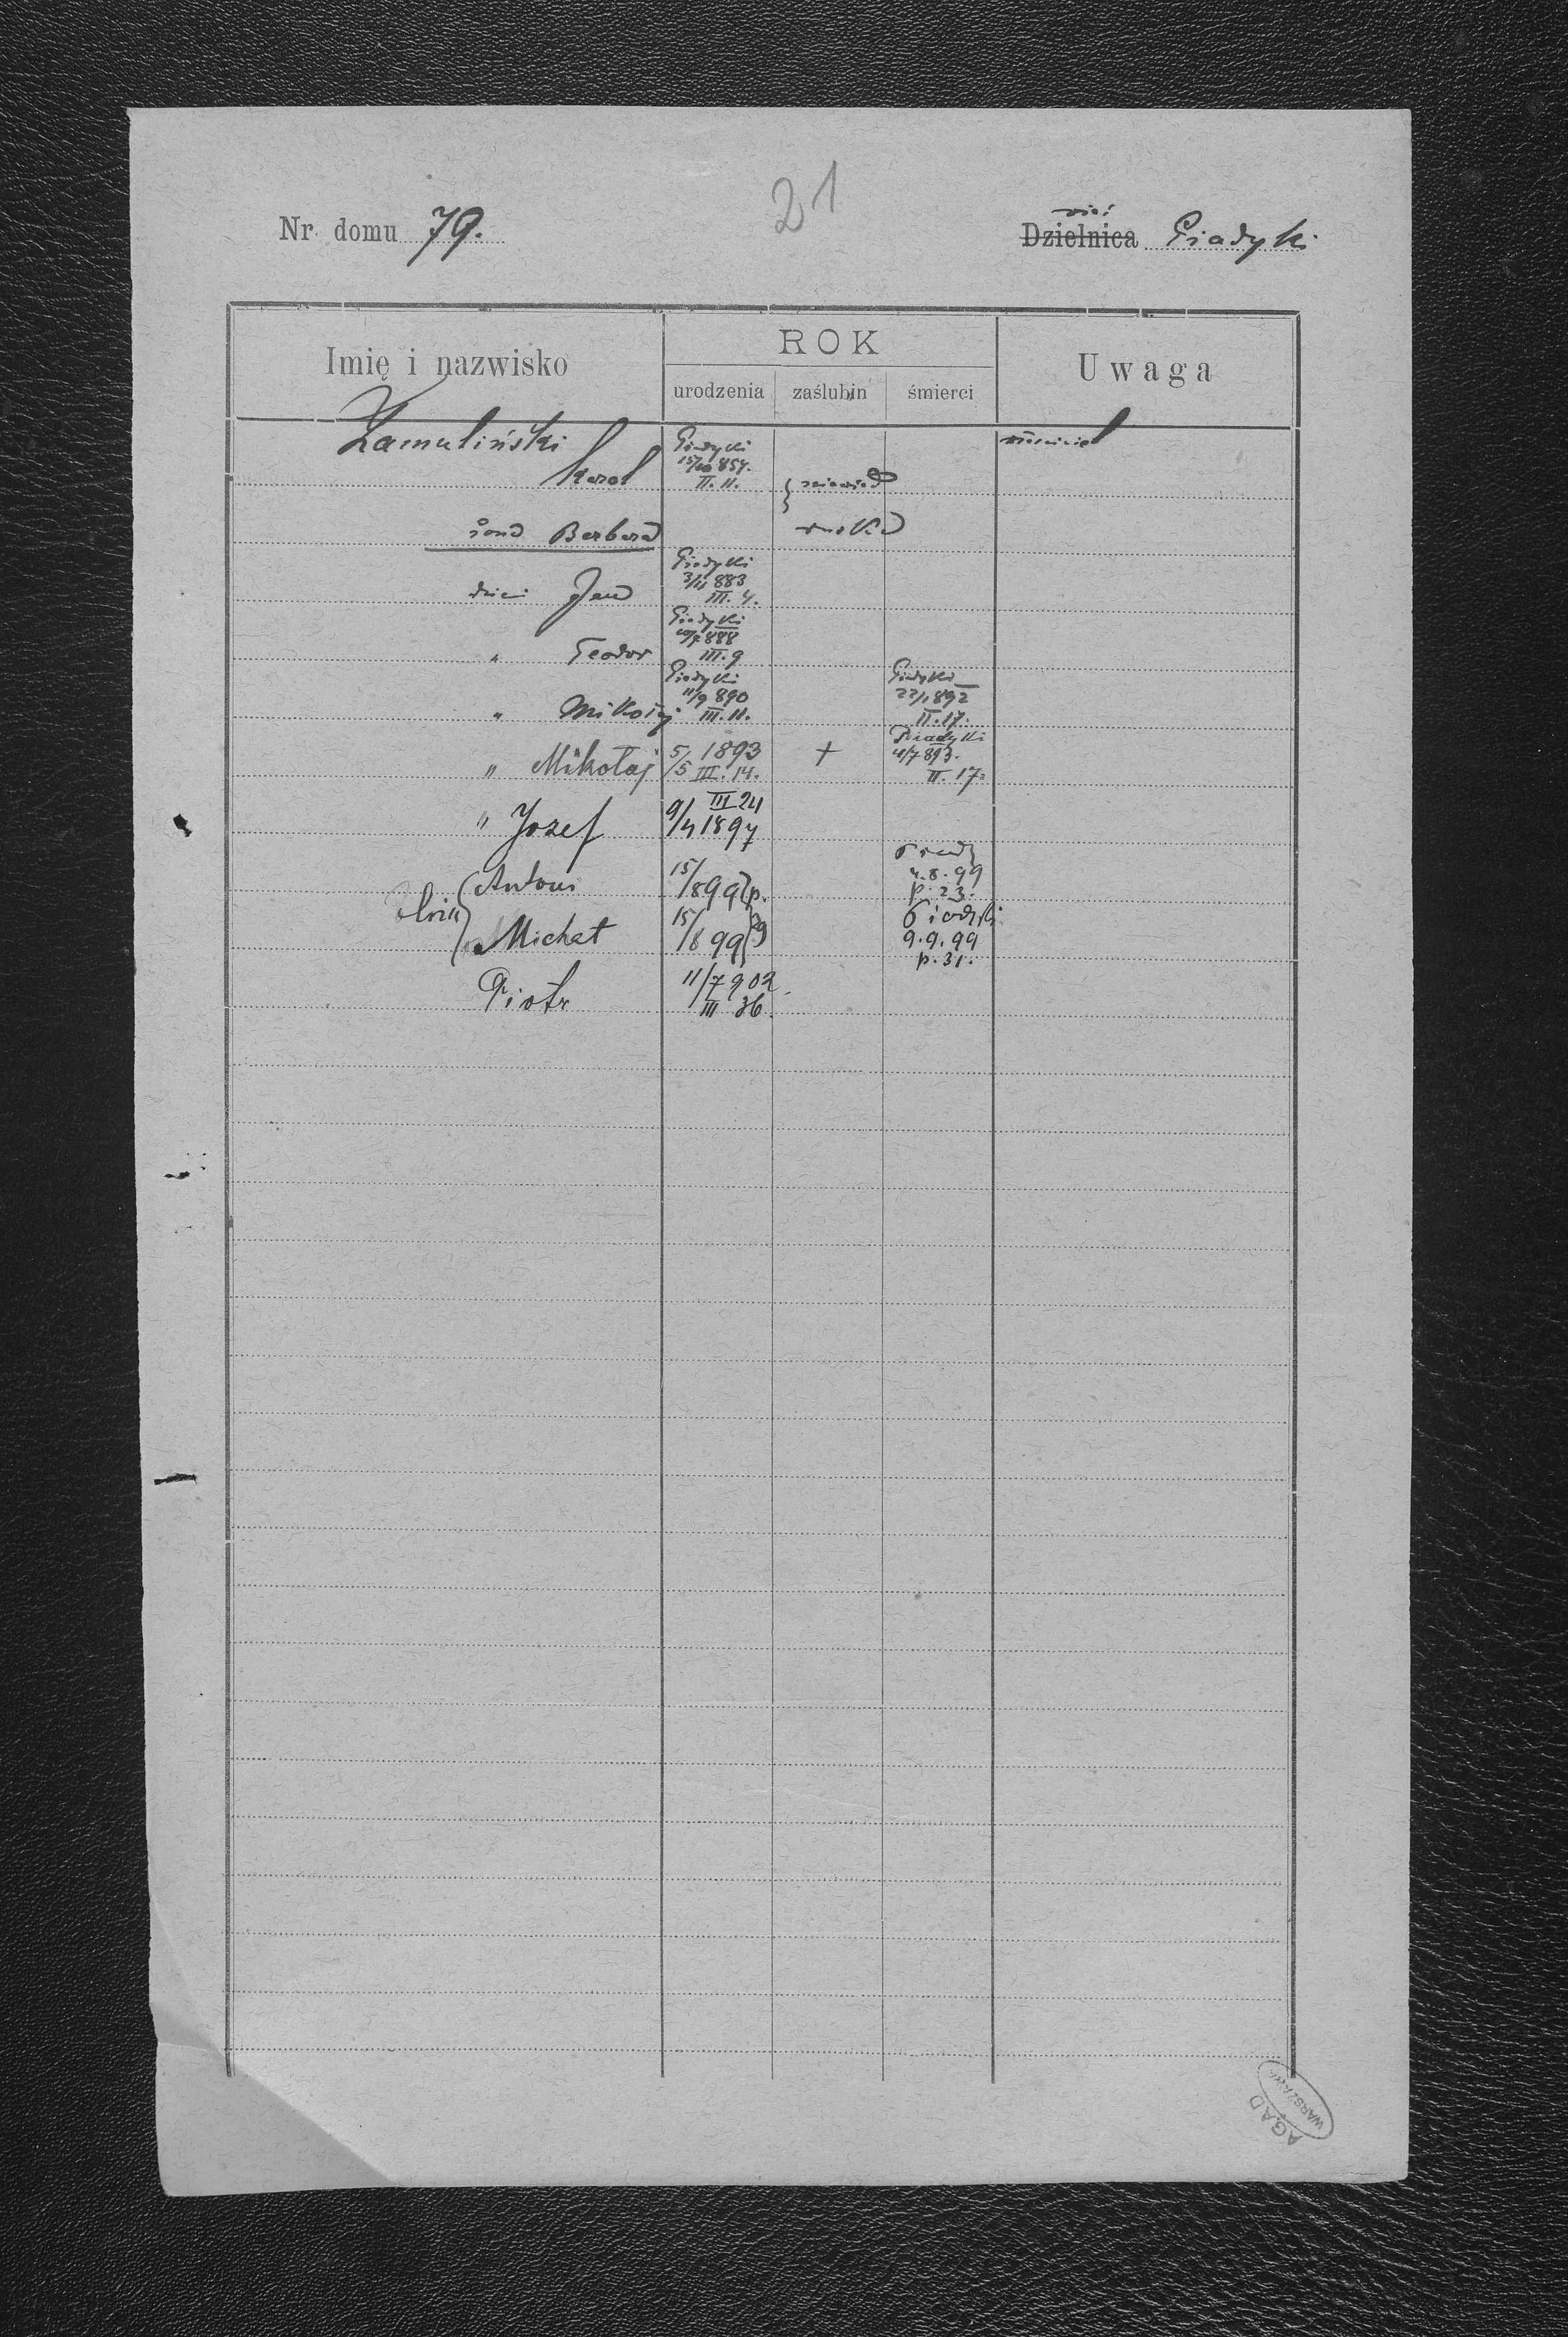 21
Nr. domu 79.
wieś
Dzielnica Piadyki
Imię i nazwisko
ROK
urodzenia zaślubin śmierci
Uwaga
Zamuliński
Karol
Piadyki
15/10 857.
II. 11.
żona Barbara
ruska
dzieci Jan
Piadyki
3/11 883
III. 4.
" Teodor
Piadyki
888
III. 9
" Mikołaj
Piadyki
11/9 890
III. 11.
Piadyki
22/1 892
II. 17.
" Mikołaj
5/5 1893
III. 14.
+
Piadyki
4/7 893.
II. 17.
" Jozef
III 24
9/4 1897
Antoni
15/8 99 p.
Piad
4.8.99
p. 23.
Michał
15/8 99 29
Piadyki
9.9.99
p. 31.
Piotr
11/7 902
III 36.
AGAD
WARSZAWA